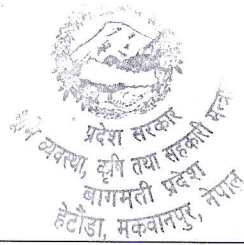 प्रदेश सरकार
व्यवस्था, कृषि तथा सहकारी
बागमती प्रदेश
हेटौंडा, मकवानपुर, नेपाल